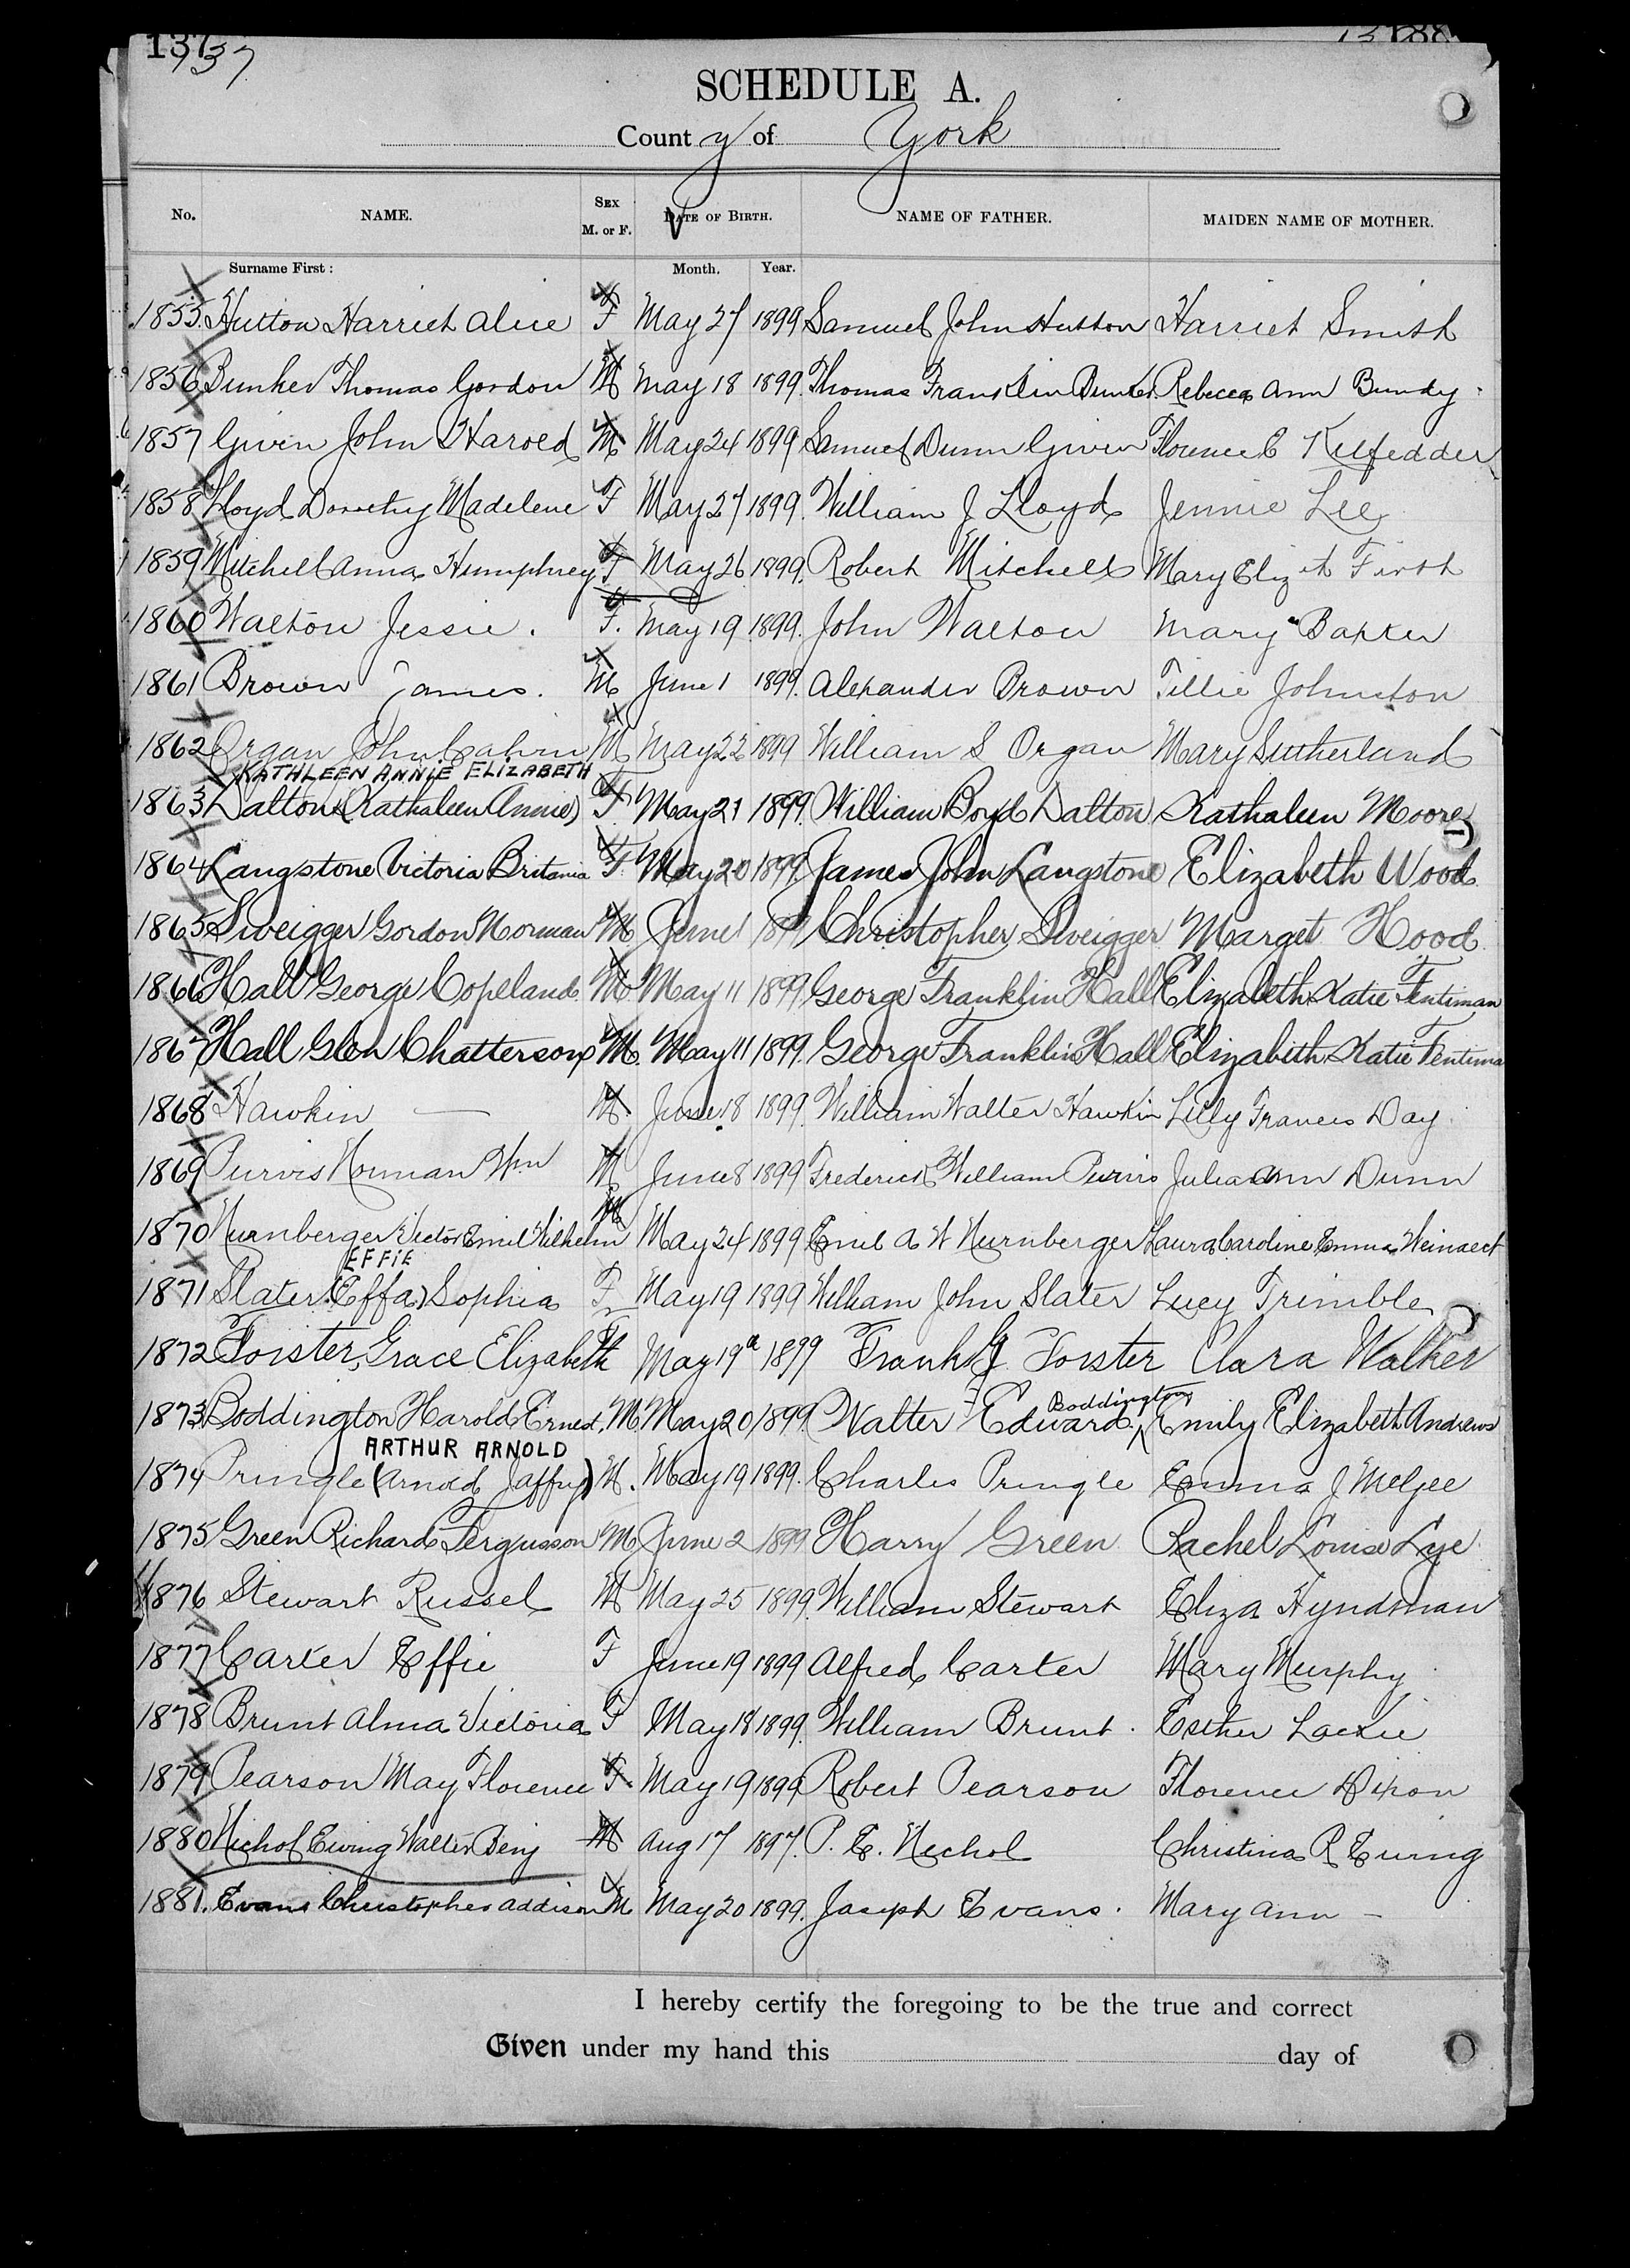 13737
SCHEDULE A.
County of York
No. NAME. SEX M. or F. DATE OF BIRTH. NAME OF FATHER. MAIDEN NAME OF MOTHER.
Surname First: Month. Year.
1855 Hutton Harriet Alice F May 27 1899 Samuel John Hutton Harriet Smith
1856 Bunker Thomas Gordon M May 18 1899. Thomas Franklin Bunker. Rebecca Ann Bundy
1857 Given John Harold M May 24 1899 Samuel Dunn Given Florence E Kilfedder
1858 Lloyd Dorothy Madelene F May 27 1899. William J Lloyd Jennie Lee
1859 Mitchell Anna Humphrey F May 26 1899. Robert Mitchell Mary Elizth Firth
1860 Walton Jessie. F. May 19 1899. John Walton Mary Baxter
1861 Brown James. M June 1 1899. Alexander Brown Tillie Johnston
1862 Organ John Calvin M May 22 1899 William S Organ Mary Sutherland
KATHLEEN ANNIE ELIZABETH
1863 Dalton (Kathaleen Annie) F. May 21 1899. William Boyd Dalton Kathaleen Moore
1864 Langstone Victoria Britania F. May 20 1899. James John Langstone Elizabeth Wood
1865 Sweigger Gordon Norman M June 1 1899 Christopher Sweigger Marget Hood
1866 Hall George Copeland M May 11 1899. George Franklin Hall Elizabeth Katie Fentiman
1867 Hall Glen Chatterson M. May 11 1899. George Franklin Hall Elizabeth Katie Fentima
1868 Hawkin — M. June 18 1899. William Walter Hawkin Lilly Frances Day
1869 Purvis Norman Wm M June 8 1899 Frederick William Purvis Julia Ann Dunn
1870 Nurnberger Victor Emil Wilhelm M May 24 1899 Emil A W Nurnberger Laura Caroline Emma Weinaect
EFFIE
1871 Slater (Effa) Sophia F May 19 1899 William John Slater Lucy Trimble
1872 Forster, Grace Elizabeth F May 19 1899 Frank G Forster Clara Walker
Boddington
1873 Boddington Harold Ernest. M. May 20, 1899. Walter Edward Emily Elizabeth Andrews
ARTHUR ARNOLD
1874 Pringle (Arnold Jaffry) M. May 19 1899. Charles Pringle Emma J McGee
1875 Green Richard Fergusson M June 2 1899 Harry Green Rachel Louise Lye
1876 Stewart Russel M May 25 1899 William Stewart Eliza Hyndman
1877 Carter Effie F June 19 1899 Alfred Carter Mary Murphy
1878 Brunt Alma Victoria F May 18 1899. William Brunt. Esther Lackie
1879 Pearson May Florence F. May 19 1899 Robert Pearson Florence Dixon
1880 Nichol Ewing Walter Benj M Aug 17 1897. P. E. Nichol Christina R Ewing
1881. Evans Christopher Addison M May 20 1899. Joseph Evans. Mary Ann —
I hereby certify the foregoing to be the true and correct
Given under my hand this day of